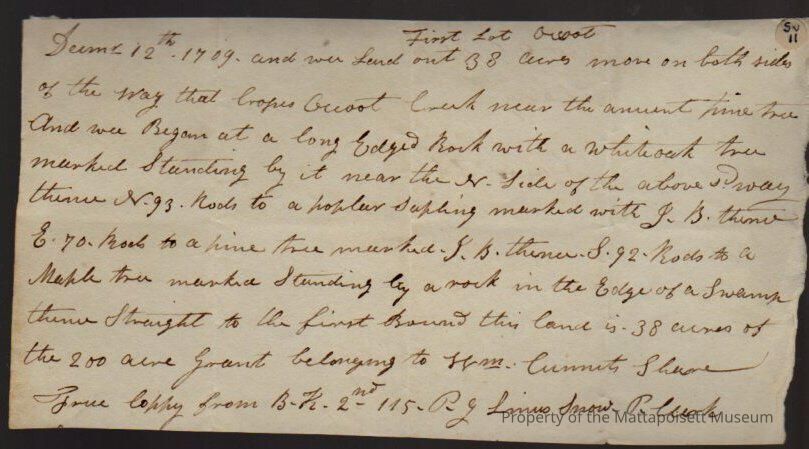 First Lot Owoot
SV
11
Decmr 12th 1709. and wee Laid out 38 acres more on both sides
of the way that Croses Owoot Creek near the ancient pine tree
And wee Began at a long Edged Rock with a white oak tree
marked Standing by it near the N. Side of the above sd way
thence N. 93. Rods to a poplar Sapling marked with J. B. thence
E. 70. Rods to a pine tree marked. J. B. thence. S. 92. Rods to a
Maple tree marked Standing by a rock in the Edge of a Swamp
thence Straight to the first Bound this land is. 38 acres of
the 200 acre Grant belonging to Wm. Share
True Coppy from B. K. 2nd 115. P. Linus Snow P. Clerk
Property of the Mattapoisett Museum